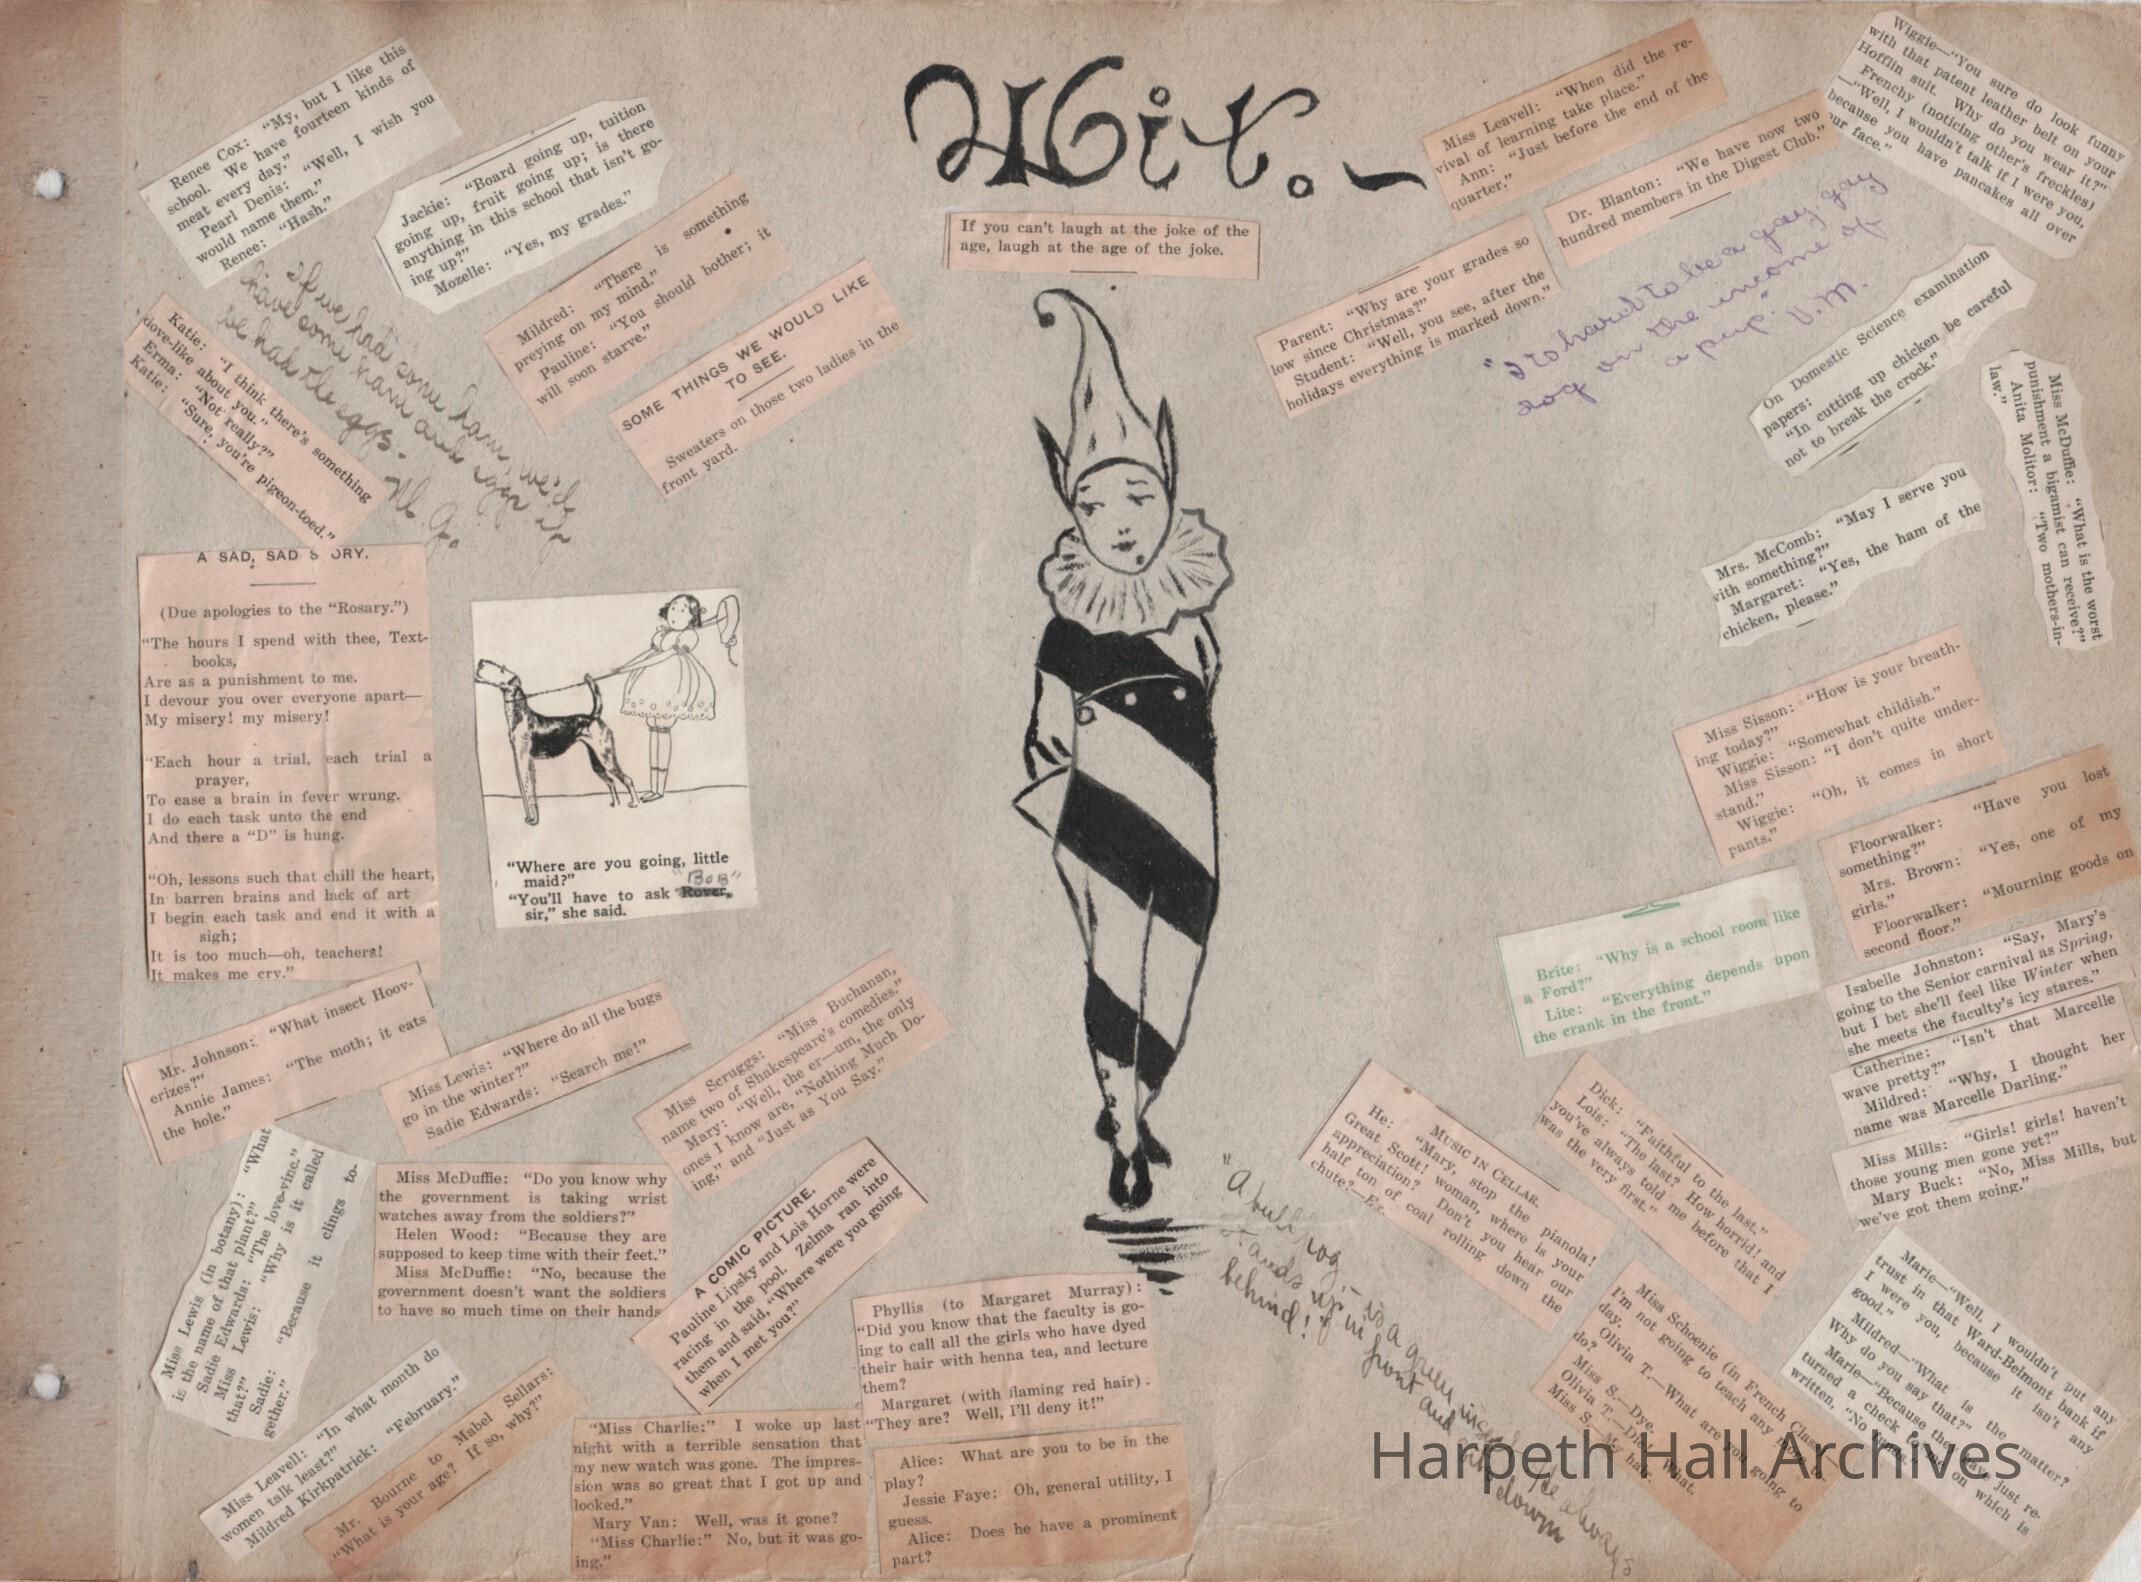 Wit.~
If you can't laugh at the joke of the
age, laugh at the age of the joke.
Renee Cox: "My, but I like this
school. We have fourteen kinds of
meat every day."
Pearl Denis: "Well, I wish you
would name them."
Renee: "Hash."
Jackie: "Board going up, tuition
going up, fruit going up; is there
anything in this school that isn't go-
ing up?"
Mozelle: "Yes, my grades."
Mildred: "There is something
preying on my mind."
Pauline: "You should bother; it
will soon starve."
SOME THINGS WE WOULD LIKE
TO SEE.
Sweaters on those two ladies in the
front yard.
If we had some ham, we'd
have some ham and eggs if
we had the eggs.
Katie: "I think there's something
dove-like about you."
Erma: "Not really?"
Katie: "Sure, you're pigeon-toed."
A SAD, SAD S ORY.
(Due apologies to the "Rosary.")
"The hours I spend with thee, Text-
books,
Are as a punishment to me.
I devour you over everyone apart—
My misery! my misery!
"Each hour a trial, each trial a
prayer,
To ease a brain in fever wrung.
I do each task unto the end
And there a "D" is hung.
"Oh, lessons such that chill the heart,
In barren brains and lack of art
I begin each task and end it with a
sigh;
It is too much—oh, teachers!
It makes me cry."
"Where are you going, little
maid?"
"BOB"
"You'll have to ask Rover,
sir," she said.
Mr. Johnson: "What insect Hoov-
erizes?"
Annie James: "The moth; it eats
the hole."
Miss Lewis: "Where do all the bugs
go in the winter?"
Sadie Edwards: "Search me!"
Miss Scruggs: "Miss Buchanan,
name two of Shakespeare's comedies."
Mary: "Well, the er—um, the only
ones I know are, "Nothing Much Do-
ing," and "Just as You Say."
Miss Lewis (in botany): "What
is the name of that plant?"
Sadie Edwards: "The love-vine."
Miss Lewis: "Why is it called
that?"
Sadie: "Because it clings to-
gether."
Miss McDuffie: "Do you know why
the government is taking wrist
watches away from the soldiers?"
Helen Wood: "Because they are
supposed to keep time with their feet."
Miss McDuffie: "No, because the
government doesn't want the soldiers
to have so much time on their hands
A COMIC PICTURE.
Pauline Lipsky and Lois Horne were
racing in the pool. Zelma ran into
them and said, "Where were you going
when I met you?"
Miss Leavell: "In what month do
women talk least?"
Mildred Kirkpatrick: "February."
Mr. Bourne to Mabel Sellars:
"What is your age? If so, why?"
"Miss Charlie:" I woke up last
night with a terrible sensation that
my new watch was gone. The impres-
sion was so great that I got up and
looked."
Mary Van: Well, was it gone?
"Miss Charlie:" No, but it was go-
ing."
Phyllis (to Margaret Murray):
"Did you know that the faculty is go-
ing to call all the girls who have dyed
their hair with henna tea, and lecture
them?
Margaret (with flaming red hair).
"They are? Well, I'll deny it!"
Alice: What are you to be in the
play?
Jessie Faye: Oh, general utility, I
guess.
Alice: Does he have a prominent
part?
Miss Leavell: "When did the re-
vival of learning take place."
Ann: "Just before the end of the
quarter."
Dr. Blanton: "We have now two
hundred members in the Digest Club."
Wiggie—"You sure do look funny
with that patent leather belt on your
Hofflin suit. Why do you wear it?"
Frenchy (noticing other's freckles)
—"Well, I wouldn't talk if I were you,
because you have pancakes all over
ur face."
Parent: "Why are your grades so
low since Christmas?"
Student: "Well, you see, after the
holidays everything is marked down."
"Its hard to be a gay, gay
dog on the income of
a pup." V.M.
On Domestic Science examination
papers:
"In cutting up chicken be careful
not to break the crock."
Miss McDuffie: "What is the worst
punishment a bigamist can receive?"
Anita Molitor: "Two mothers-in-
law."
Mrs. McComb: "May I serve you
vith something?"
Margaret: "Yes, the ham of the
chicken, please."
Miss Sisson: "How is your breath-
ing today?"
Wiggie: "Somewhat childish."
Miss Sisson: "I don't quite under-
stand."
Wiggie: "Oh, it comes in short
pants."
Floorwalker: "Have you lost
something?"
Mrs. Brown: "Yes, one of my
girls."
Floorwalker: "Mourning goods on
second floor."
Brite: "Why is a school room like
a Ford?"
Lite: "Everything depends upon
the crank in the front."
Isabelle Johnston: "Say, Mary's
going to the Senior carnival as Spring,
but I bet she'll feel like Winter when
she meets the faculty's icy stares."
Catherine: "Isn't that Marcelle
wave pretty?"
Mildred: "Why, I thought her
name was Marcelle Darling."
Miss Mills: "Girls! girls! haven't
those young men gone yet?"
Mary Buck: "No, Miss Mills, but
we've got them going."
MUSIC IN CELLAR.
He: "Mary, stop the pianola!
Great Scott! woman, where is your
appreciation? Don't you hear our
half ton of coal rolling down the
chute?—Ex.
Dick: "Faithful to the last,"
Lois: "The last? How horrid! and
you've always told me before that I
was the very first."
"A bull frog, - is a green insect
stands up in front and
behind!"
down
always
Miss Schoenie (in French Class)
I'm not going to teach any
day.
Olivia T.—What are you going to
do?
Miss S.—Dye.
Olivia T.—Die! What.
Miss S.—My hair.
Marie—"Well, I wouldn't put any
trust in that Ward-Belmont bank if
I were you, because it isn't any
good."
Mildred—"What is the matter?
Why do you say that?"
Marie—"Because they have just re-
turned a check to me on which is
written, "No
Harpeth Hall Archives